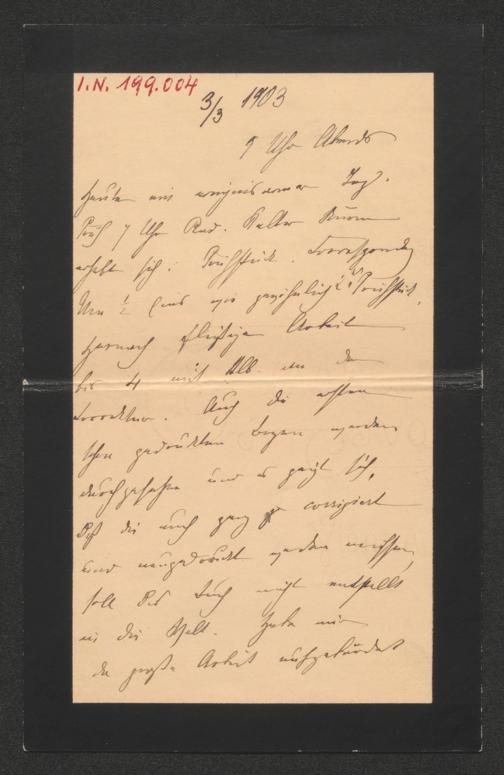 I.N. 199.004
3/3 1903
9 Uhr Abends
Heute ein ereignisarmer Tag.
Früh 7 Uhr Rad. Kalter Sturm
erhebt sich. Frühstück. Correspondenz
Um ½ eins wie gewöhnlich 2. Frühstück.
Hernach fleißige Arbeit
bis 4 mit Alb. an den
Correkturen. Auch die ersten
schon gedruckten Bogen werden
durchgesehen und es zeigt sich,
daß die auch ganz corrigiert
und neugedruckt werden müssen,
soll das Buch nicht entstellt
in die Welt. Habe mir
da große Arbeit aufgebürdet